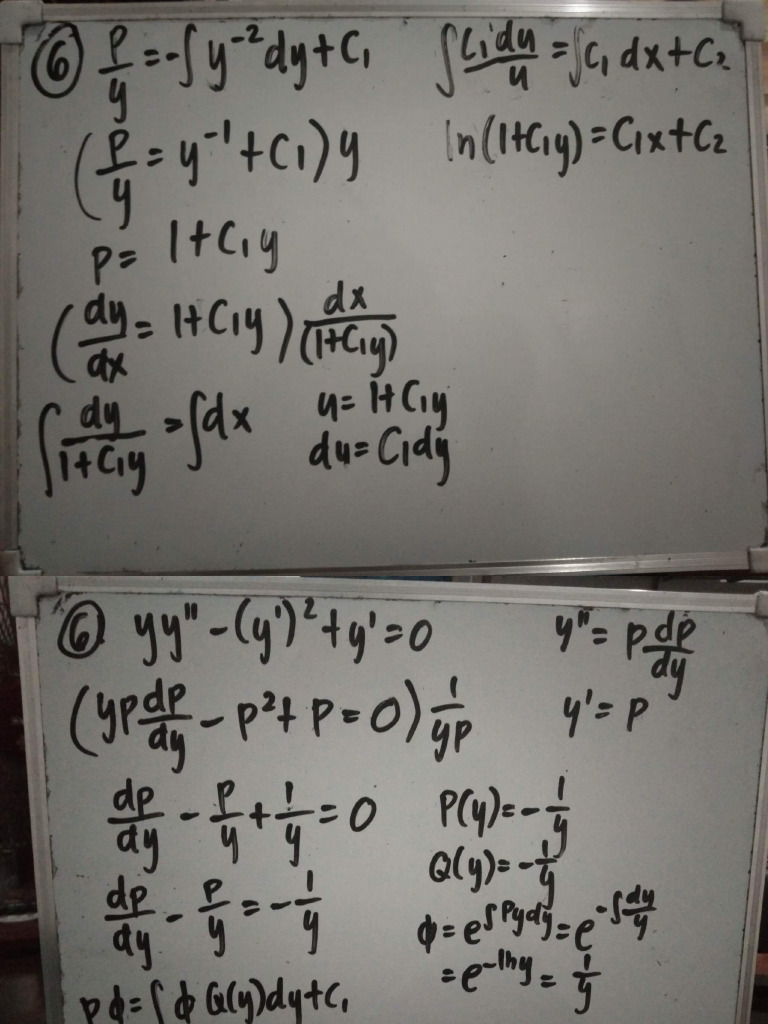 ⑥ p/y = -∫y⁻²dy + C₁
(p/y = y⁻¹ + C₁)y
p = 1 + C₁y
(dy/dx = 1 + C₁y) dx/(1+C₁y)
∫ dy/(1+C₁y) = ∫dx
u = 1 + C₁y
du = C₁dy
∫ C₁du/u = ∫C₁dx + C₂
ln(1+C₁y) = C₁x + C₂
⑥ yy'' - (y')² + y' = 0
(yp dp/dy - p² + p = 0) 1/yp
dp/dy - p/y + 1/y = 0
dp/dy - p/y = -1/y
pϕ = ∫ϕ Q(y)dy + C₁
y'' = p dp/dy
y' = p
P(y) = -1/y
Q(y) = -1/y
ϕ = e^∫Pydy = e^-∫dy/y
= e^-lny = 1/y